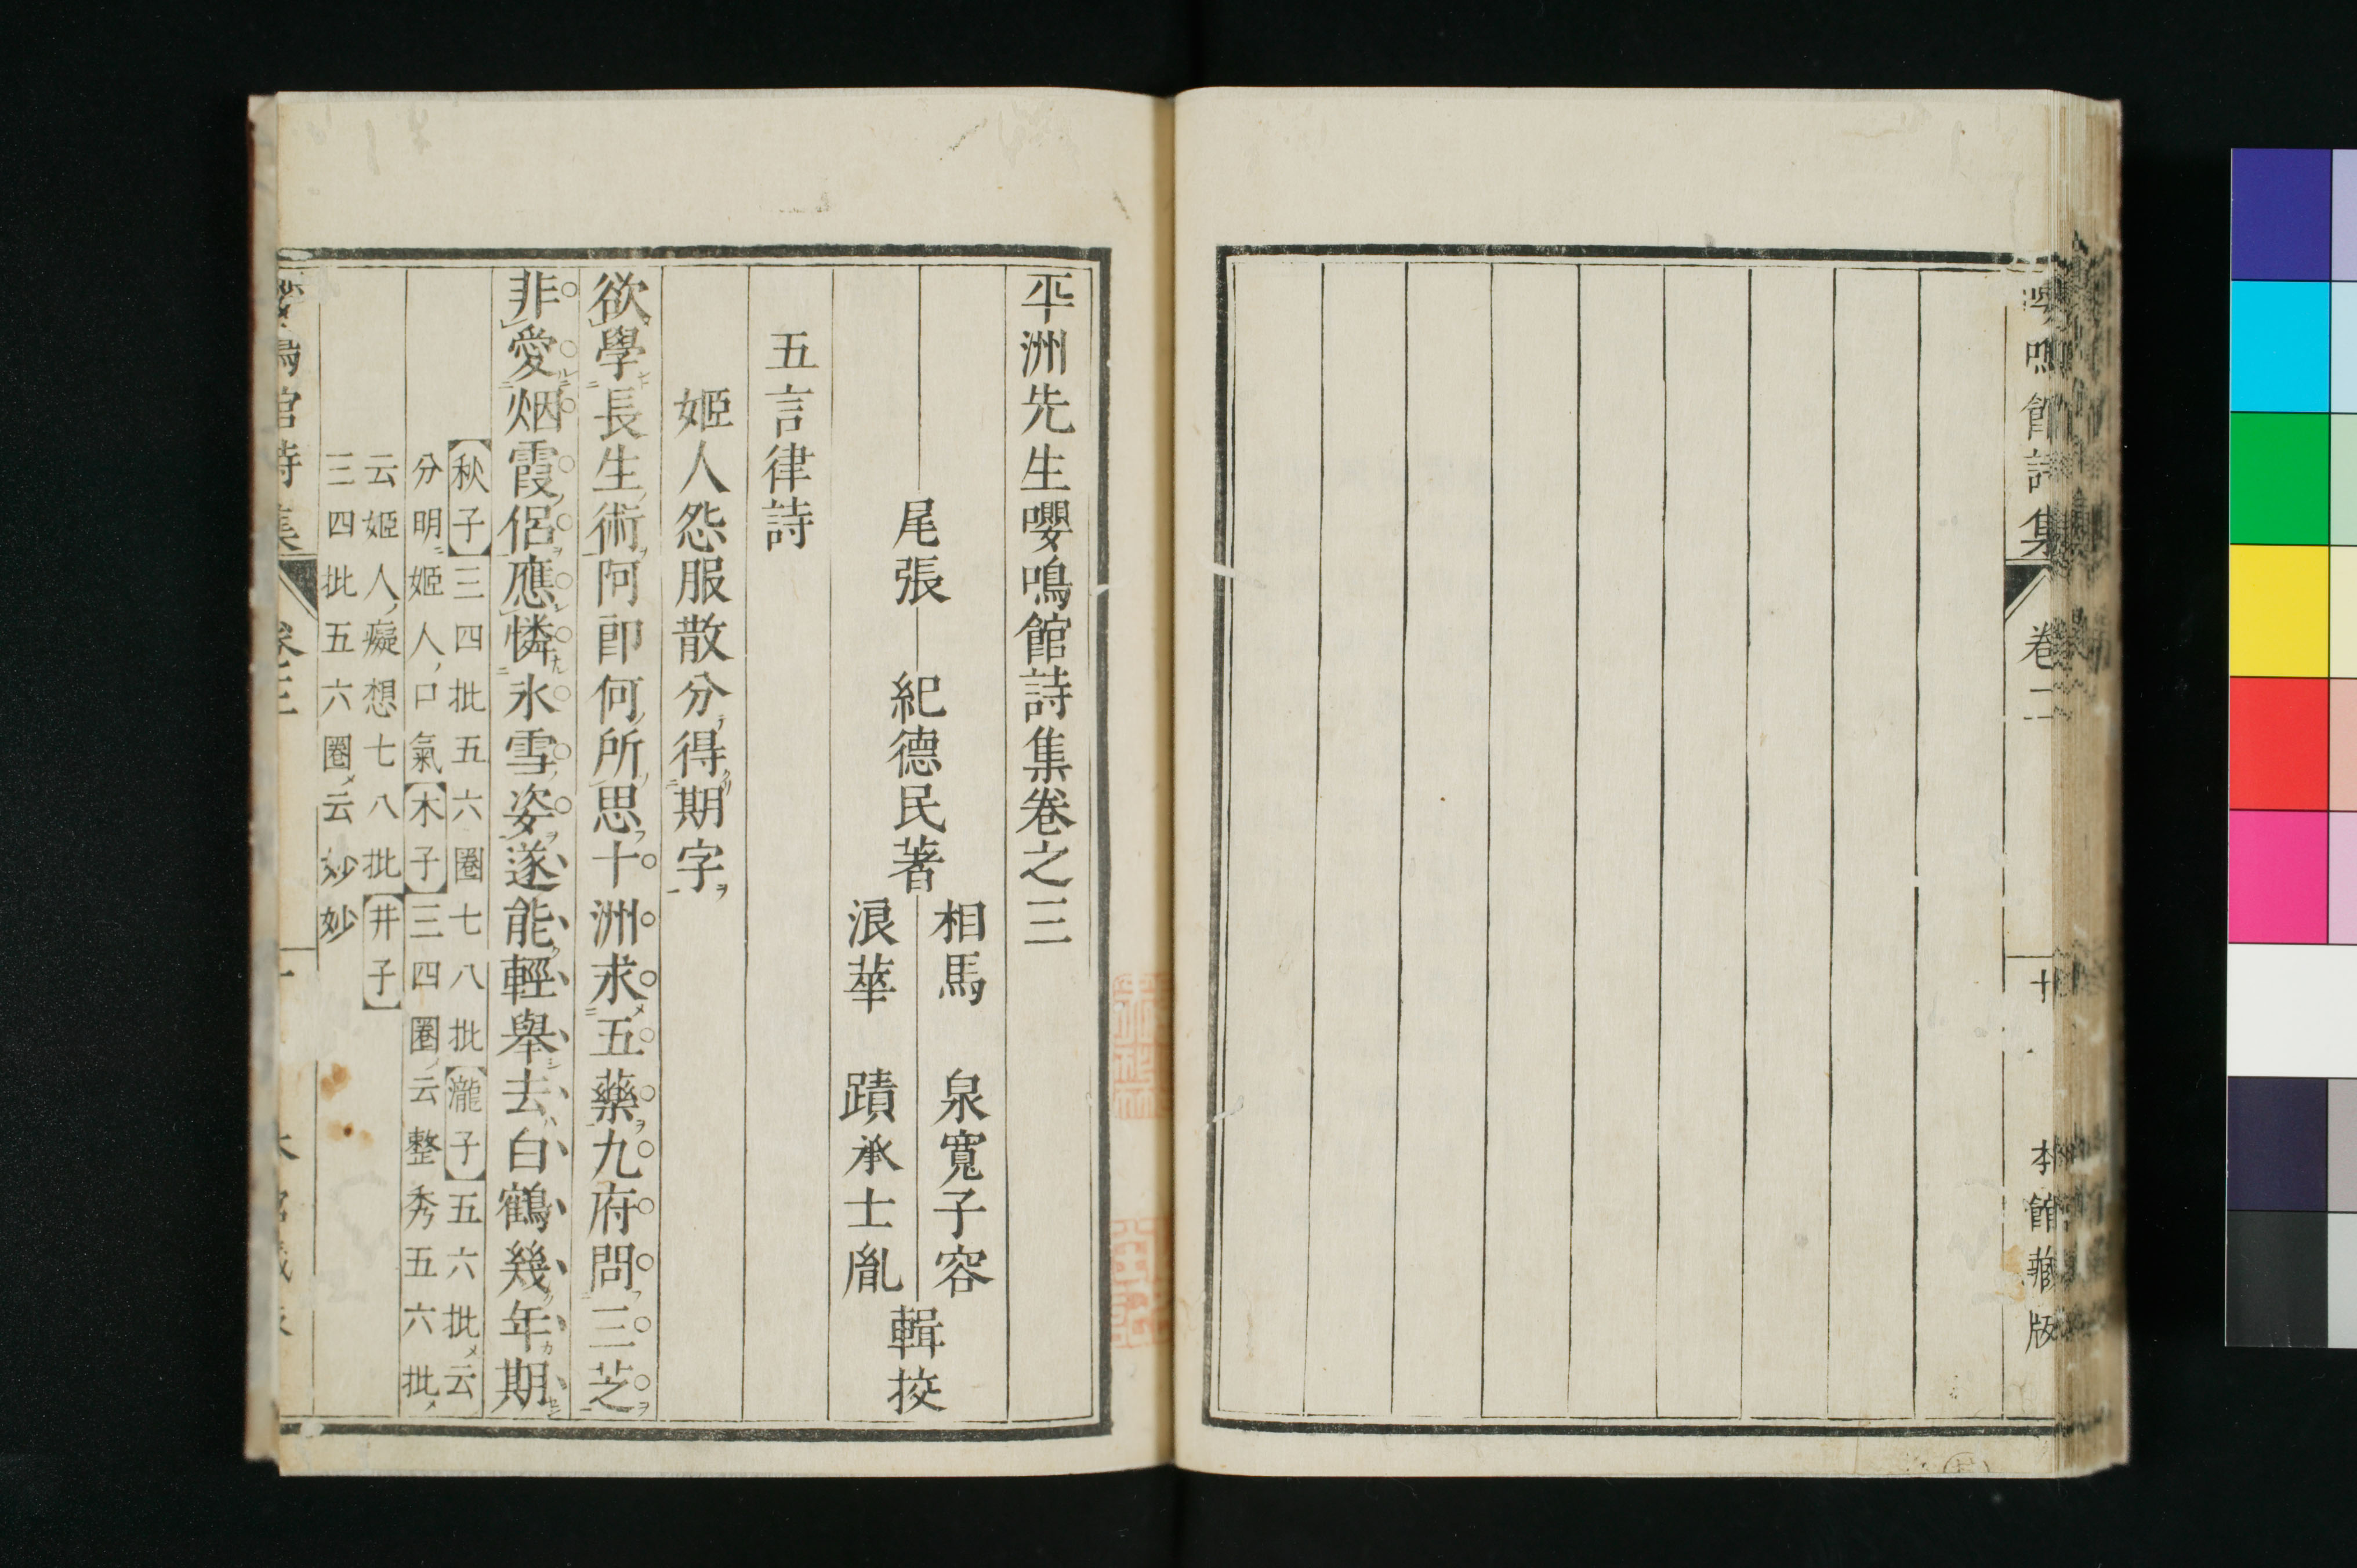 鳴館詩集 卷二 十 本館藏版
平洲先生嚶鳴館詩集卷之三
尾張 紀德民著
相馬 泉寬子容
浪華 蹟承士胤
輯挍
五言律詩
姬人怨服散分得期字
欲學長生術阿卽何所思十洲求五藥九府問三芝
非愛烟霞侶應憐氷雪姿遂能輕舉去白鶴幾年期
【秋子】三四批五六圈七八批【瀧子】五六批云
分明姬人口氣【木子】三四圈云整秀五六批
云姬人癡想七八批【井子】
三四批五六圈云妙妙
嚶鳴館詩集 卷三